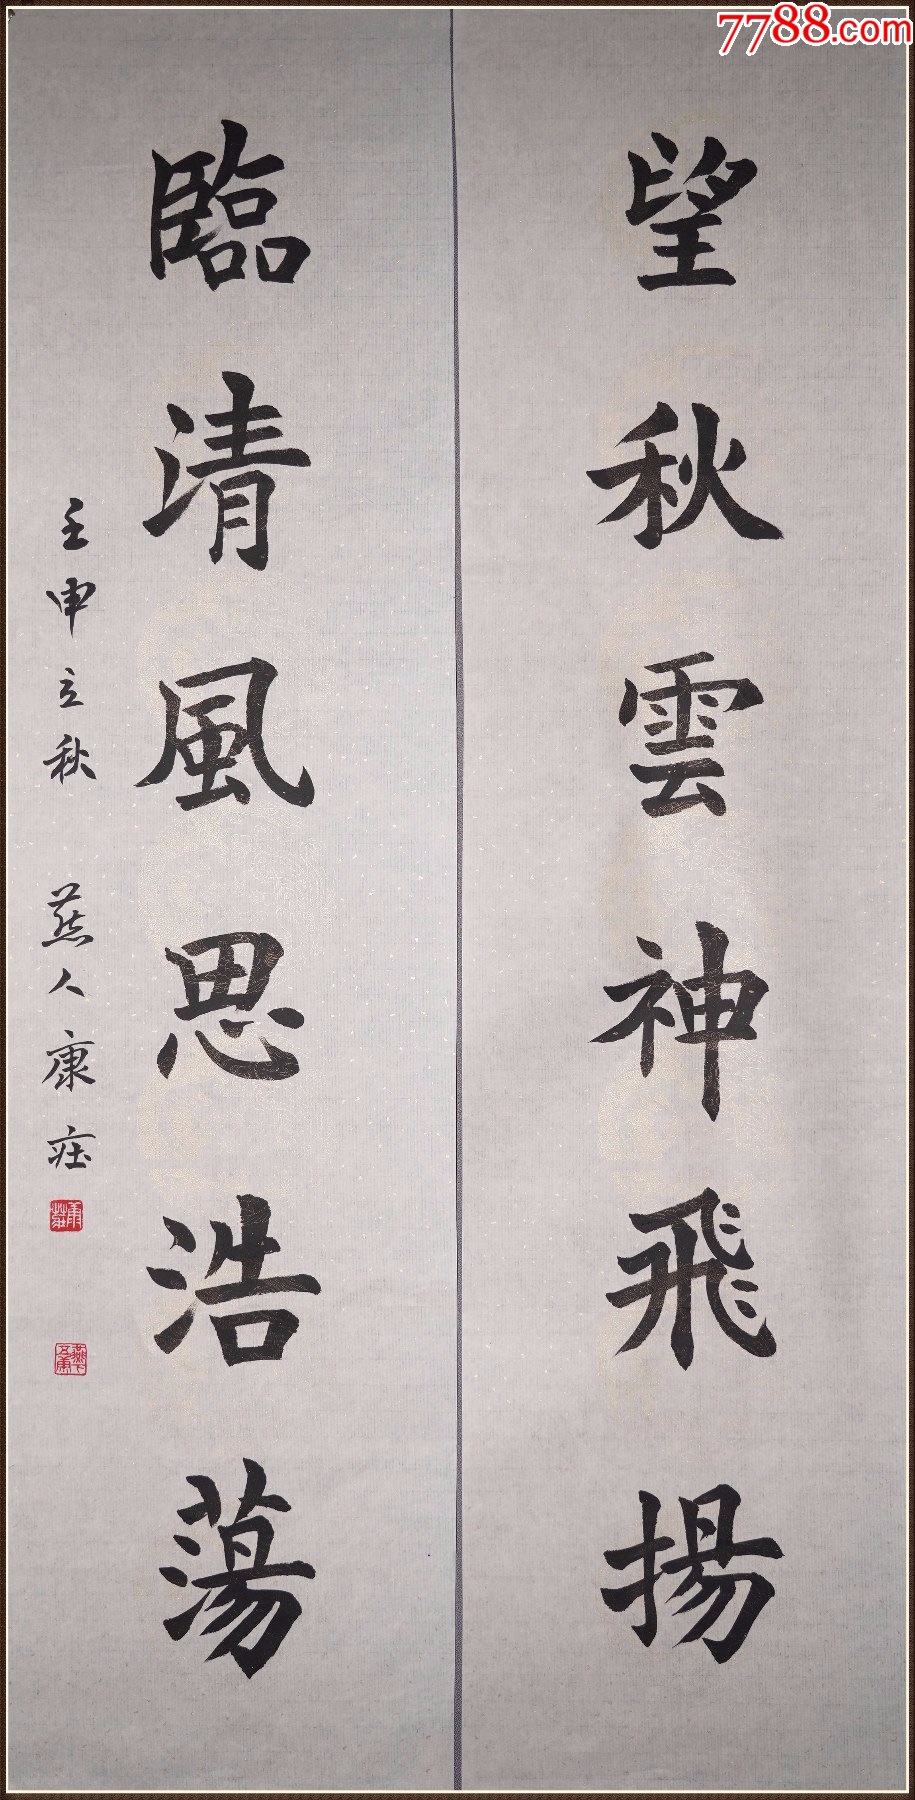 7788.com
望秋雲神飛揚
臨清風思浩蕩
壬申立秋 燕人康庄